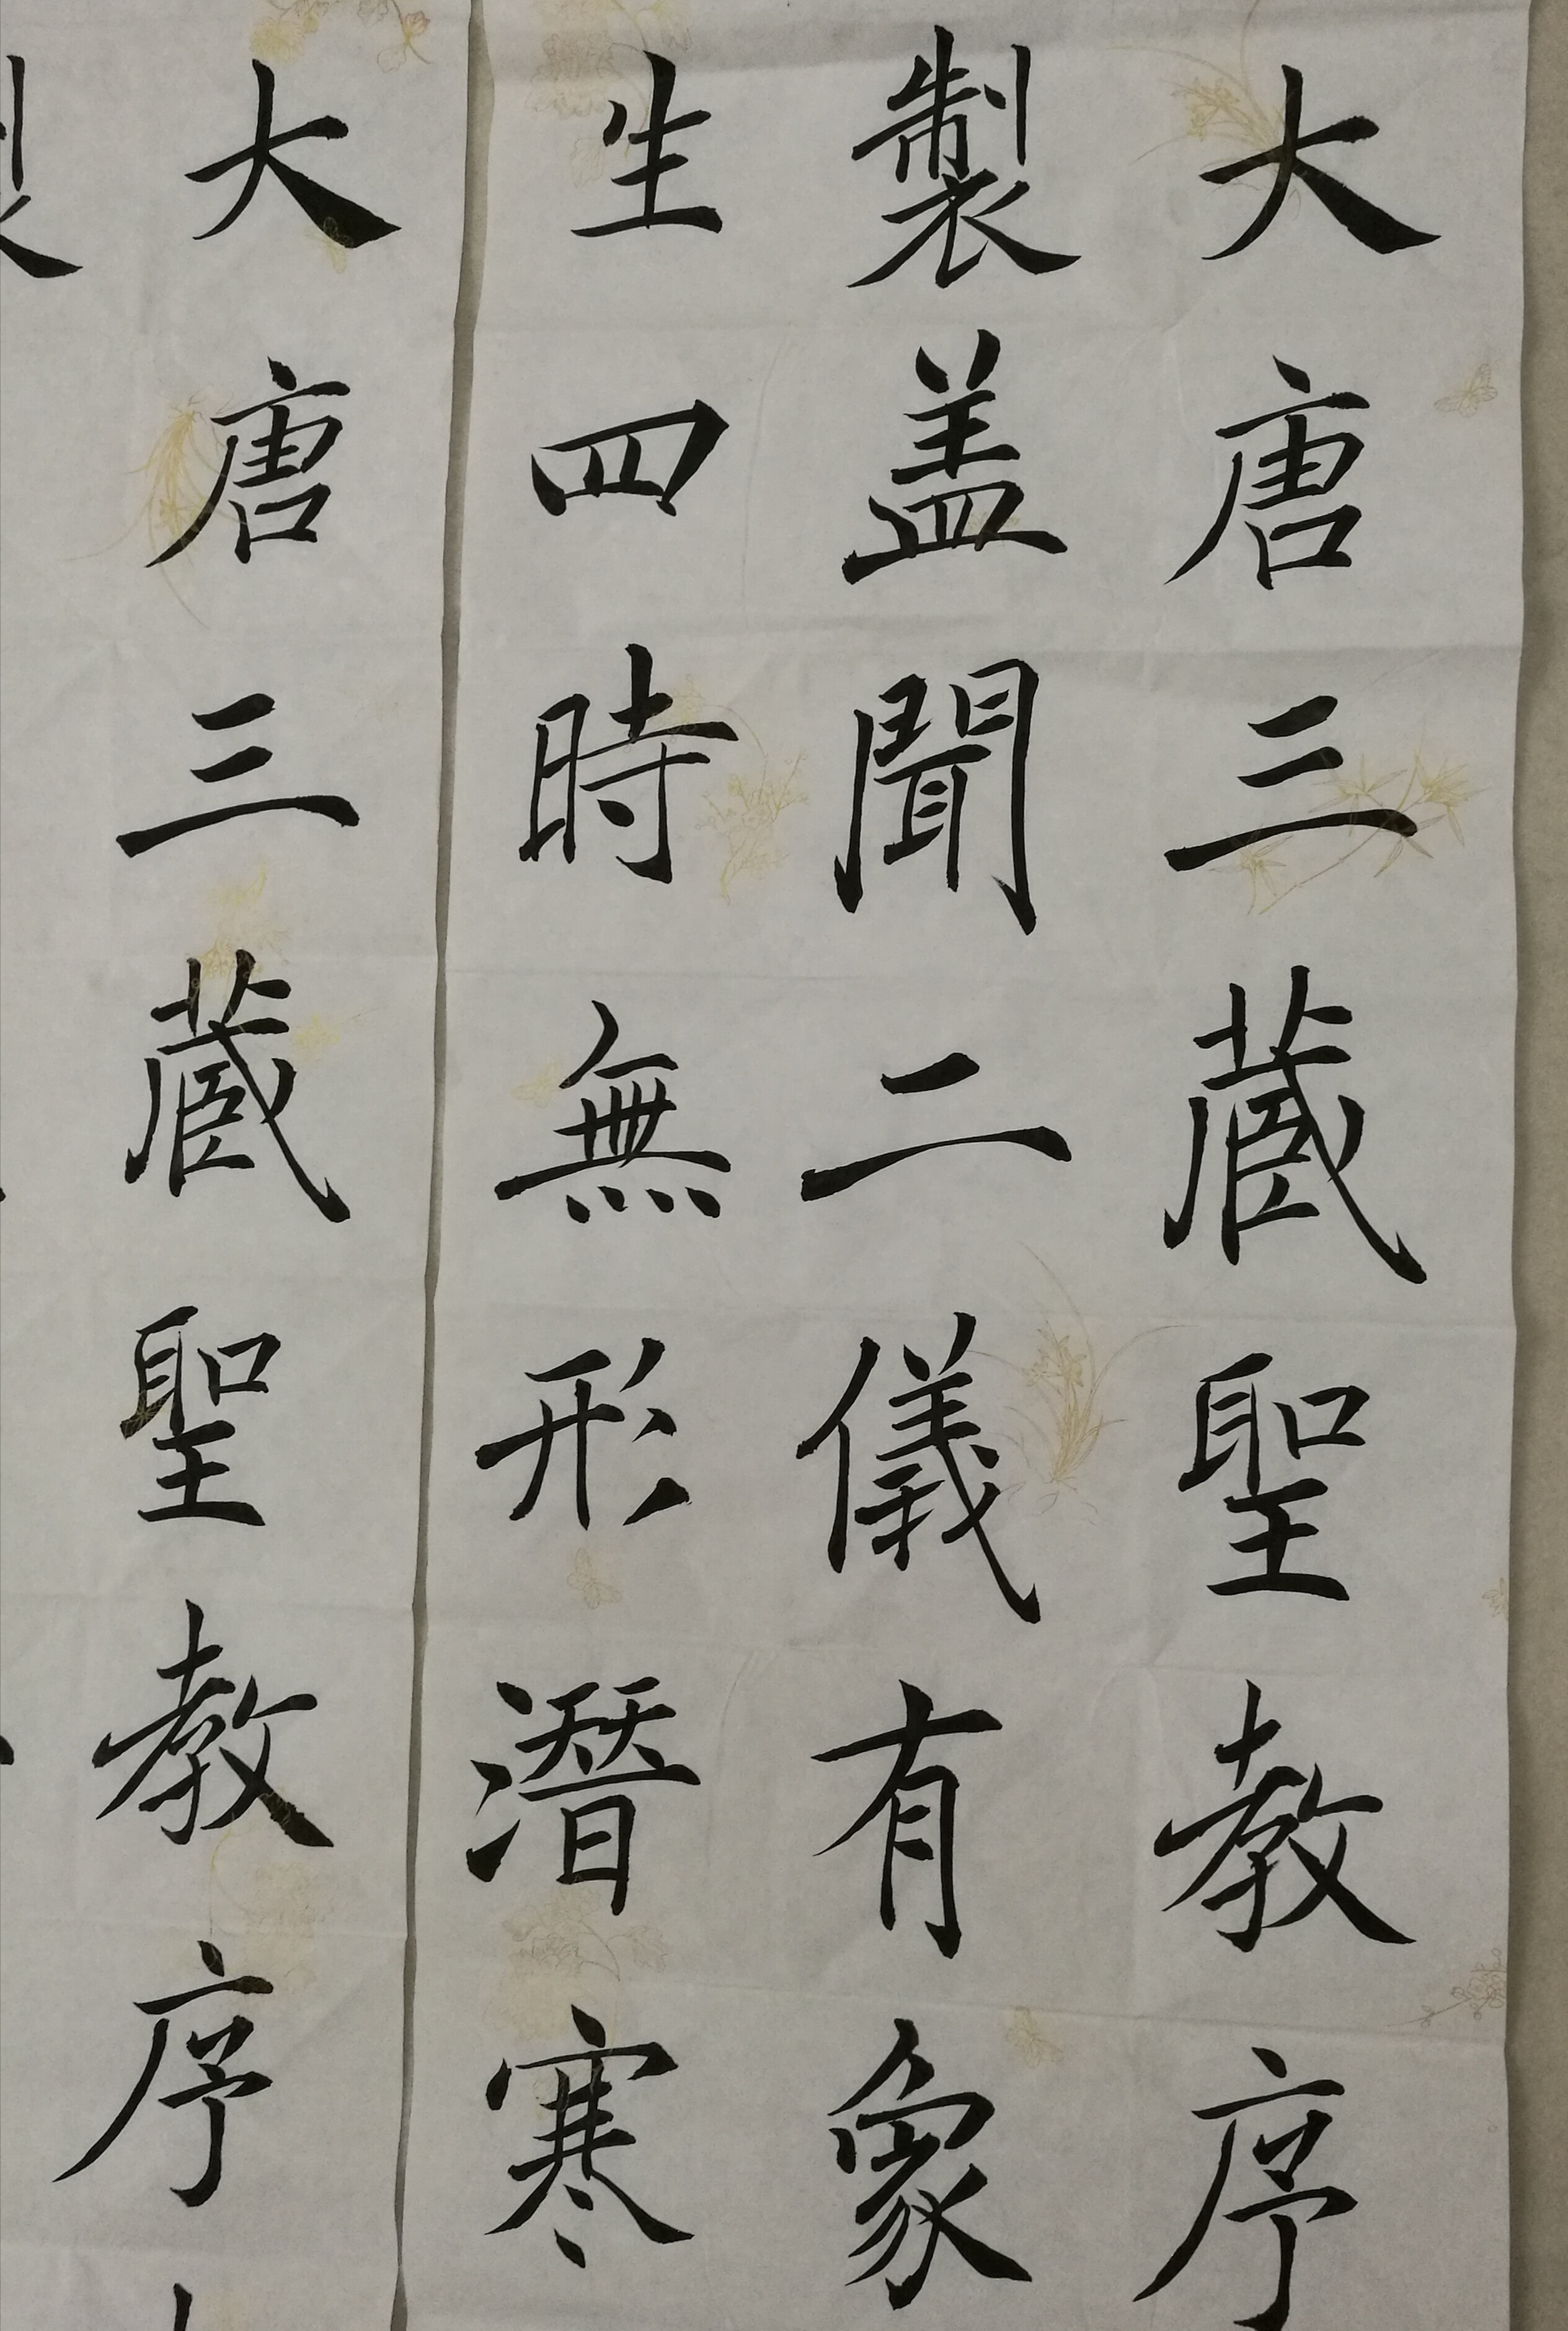 大唐三藏聖教序
製盖聞二儀有象
生四時無形潛寒
大唐三藏聖教序
製